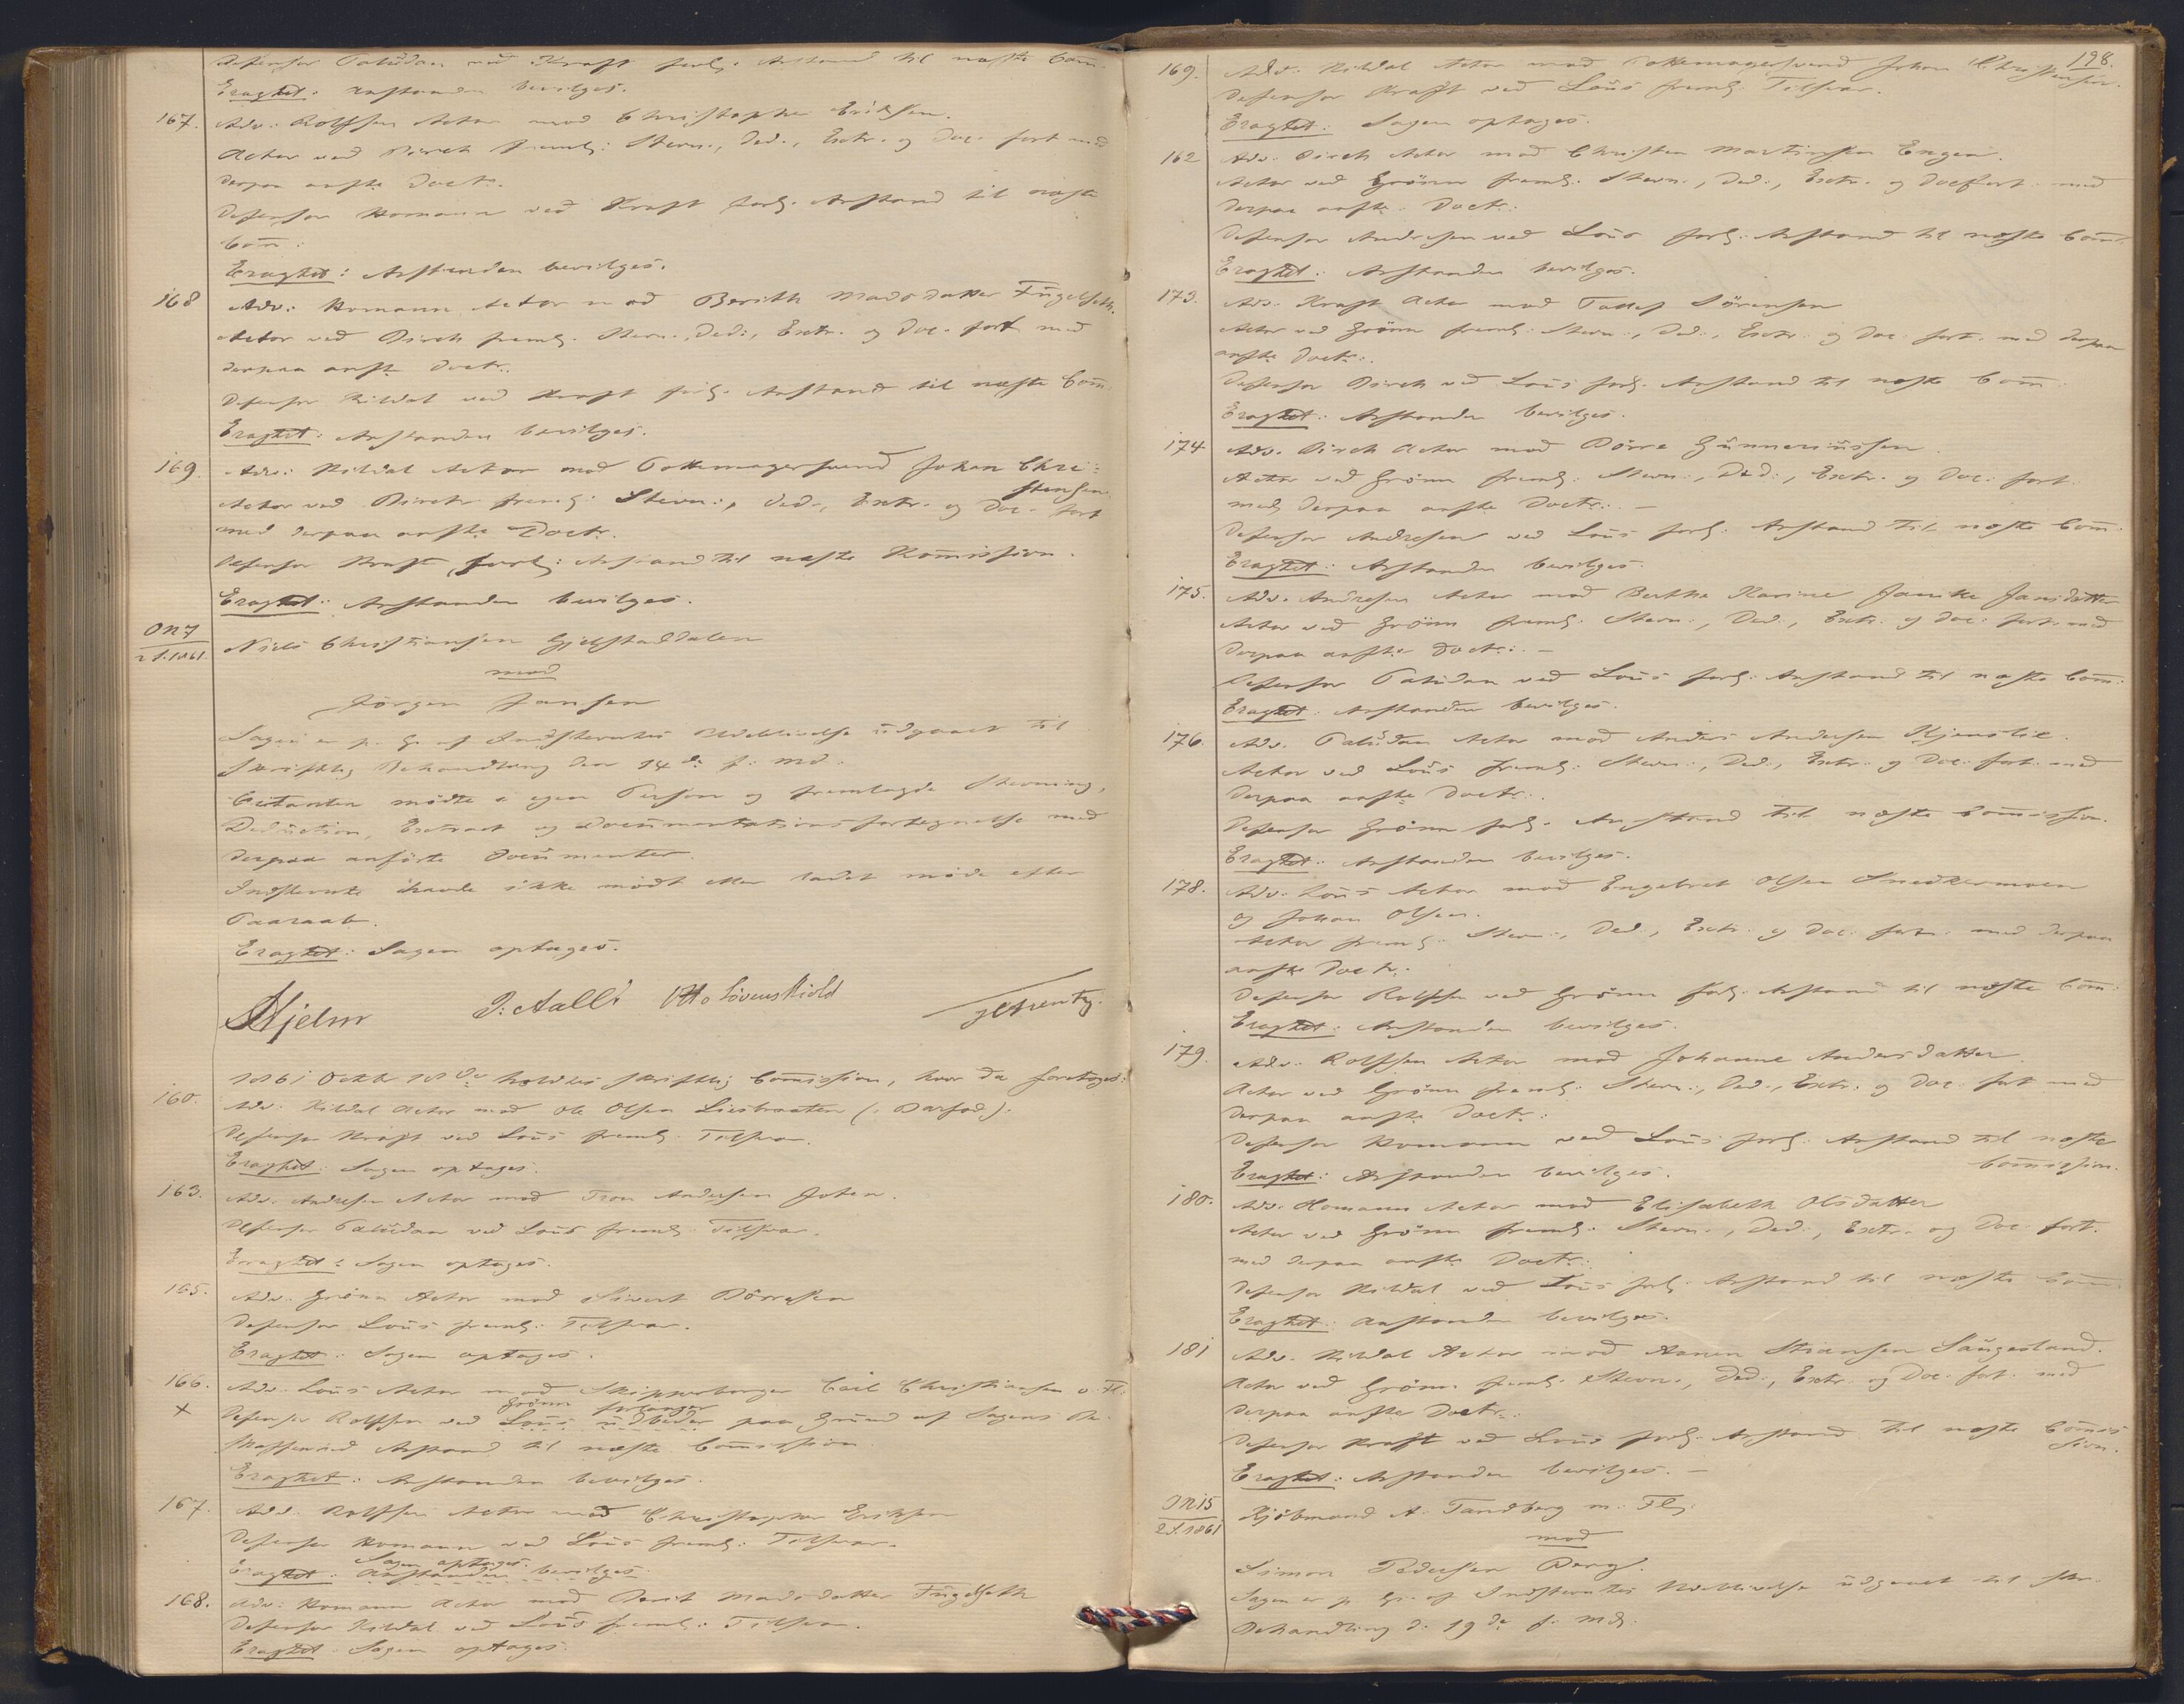 Defensor Paludan ved Kraft forl: Anstand til næste Com:
Eragtet: Anstanden bevilges.
167. Adv: Rolfsen Actor mod Christopher Eriksen.
Actor ved Birch freml: Stevn:, Ded:, Extr: og Doc: fort: med
derpaa anfte Doctr:
Defensor Homann ved Kraft forl: Anstand til næste
Com:
Eragtet: Anstanden bevilges.
168 Adv: Homann Actor mod Berith Madsdatter Fugelseth.
Actor ved Birch freml: Stevn:, Ded:, Extr: og Doc: fort: med
derpaa anfte Doctr:
Defensor Kildal ved Kraft forl: Anstand til næste Com:
Eragtet: Anstanden bevilges.
169. Adv: Kildal Actor mod Pottemagersvend Johan Chri=
stensen.
Actor ved Birch freml: Stevn:, Ded:, Extr: og Doc: fort
med derpaa anfte Doctr:
Defensor Kraft forl: Anstand til næste Kommission.
Eragtet: Anstanden bevilges.
ON 7
2 S. 1861. Niels Christiansen Gjelstaddalen
mod
Jörgen Jansen
Sagen er p. Gr. af Indstevntes Udeblivelse udgaaet til
Skriftlig Behandling den 14de f: Md:
Citanten mödte i egen Person og fremlagde Stevning,
Deduction, Extract og Documentationsfortegnelse med
derpaa anförte Documenter.
Indstevnte havde ikke mödt eller ladet möde efter
Paaraab.
Eragtet: Sagen optages.
Hjelm J: Aall Otto Lövenskiold
1861 Octbr 18de holdtes skriftlig Commission, hvor da foretoges:
160. Adv: Kildal Actor mod Ole Olsen Liebraaten (: Barfod):
Defensor Kraft ved Lous freml: Tilsvar.
Eragtet: Sagen optages.
163. Adv: Andresen Actor mod Tron Andersen Joten.
Defensor Paludan ved Lous freml: Tilsvar.
Eragtet: Sagen optages.
165. Adv: Grönn Actor mod Sivert Börresen
Defensor Lous freml: Tilsvar.
Eragtet: Sagen optages.
166. Adv: Lous Actor mod Skipperborger Carl Christiansen o: Fl:
Grönn forlanger
× Defensor Rolfsen ved Lous udbeder paa Grund af Sagens Be-
skaffenhed Anstand til næste Commission.
Eragtet: Anstanden bevilges.
167. Adv: Rolfsen Actor mod Christopher Eriksen
Defensor Homann ved Lous freml: Tilsvar.
Sagen optages.
Eragtet: Anstanden bevilges
168. Adv: Homann Actor mod Berit Madsdatter Fugelseth
Defensor Kildal ved Lous freml: Tilsvar.
Eragtet: Sagen optages.
198.
169. Adv: Kildal Actor mod Pottemagersvend Johan Christensen.
Defensor Kraft ved Lous freml: Tilsvar.
Eragtet: Sagen optages.
162 Adv: Birch Actor mod Christen Martinsen Engen.
Actor ved Grönn freml: Stevn:, Ded:, Extr: og Docfort: med
derpaa anfte: Doctr:
Defensor Andresen ved Lous forl: Anstand til næste Com:
Eragtet: Anstanden bevilges.
173. Adv: Kraft Actor mod Tollef Sörensen
Actor ved Grönn freml: Stevn:, Ded:, Extr: og Doc: fort: med derpaa
anfte Doctr:
Defensor Birch ved Lous forl: Anstand til næste Com:
Eragtet: Anstanden bevilges.
174 Adv: Birch Actor mod Börre Gunneriussen.
Actor ved Grönn freml: Stevn:, Ded:, Extr: og Doc: fort:
med derpaa anfte Doctr: —
Defensor Andresen ved Lous forl: Anstand til næste Com:
Eragtet: Anstanden bevilges.
175. Adv: Andresen Actor mod Berthe Karine Jansdatter
Actor ved Grönn freml: Stevn:, Ded:, Extr: og Doc: fort: med
derpaa anfte Doctr: —
Defensor Paludan ved Lous forl: Anstand til næste Com:
Eragtet: Anstanden bevilges.
176. Adv: Paludan Actor mod Anders Andersen Kjenslie.
Actor ved Lous freml: Stevn:, Ded:, Extr: og Doc: fort: med
derpaa anfte Doctr:
Defensor Grönn forl: Anstand til næste Commission.
Eragtet: Anstanden bevilges.
178. Adv: Lous Actor mod Engebret Olsen Snedkermoen
og Johan Olsen.
Actor freml: Stevn:, Ded:, Extr: og Doc: fort: med derpaa
anfte Doctr:
Defensor Rolfsen ved Grönn forl: Anstand til næste Com:
Eragtet: Anstanden bevilges.
179. Adv: Rolfsen Actor mod Johanne Andersdatter.
Actor ved Grönn freml: Stevn:, Ded:, Extr: og Doc: fort: med
derpaa anfte Doctr:
Defensor Homann ved Lous forl: Anstand til næste
Commission.
Eragtet: Anstanden bevilges.
180. Adv: Homann Actor mod Elisabeth Olsdatter
Actor ved Grönn freml: Stevn:, Ded:, Extr: og Doc: fort:
med derpaa anfte Doctr:
Defensor Kildal ved Lous forl: Anstand til næste Com:
Eragtet: Anstanden bevilges.
181 Adv: Kildal Actor mod Aanen Stiansen Saugesland.
Actor ved Grönn freml: Stevn:, Ded:, Extr: og Doc: fort: med
derpaa anfte Doctr:
Defensor Kraft ved Lous forl: Anstand til næste Commis
sion.
Eragtet: Anstanden bevilges. —
ON 15
2 S. 1861 Kjöbmand A. Tandberg m: Fl:
mod
Simon Pedersen Berg.
Sagen er p. Gr: af Indstevntes Udeblivelse udgaaet til skr:
Behandling d. 19de f: Md: